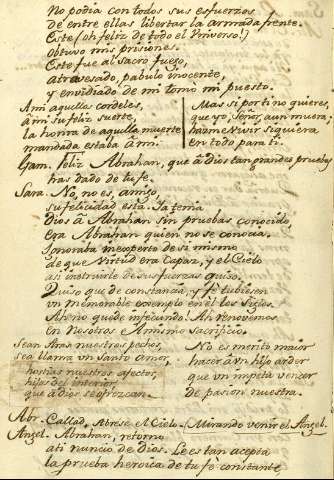 No podia con todos sus esfuerzos
de entre ellas libertar la armada frente.
Este (oh feliz de todo el Universo!)
obtuvo mis prisiones.
Este fue al sacro fuego,
atravesado, pabulo inocente,
y envidiado de mi tomó mi puesto.
A mi aquellos cordeles,
â mi su feliz suerte,
la honra de aquella muerte
mandada estaba â mi.
Mas si por ti no quieres,
que yo, Señor, aun muera;
hazme vivir siquiera
en todo para ti.
Gam. feliz Abrahan, que â dios tan grandes pruebas
has dado de tu fe.
Sara. No, no es, amigo,
su felicidad esta. Ya tenia
dios â Abrahan sin pruebas conocido,
era Abrahan quien no se conocia.
Ignoraba inexperto de si mismo
de que virtud era capaz, y el Cielo
ati instruirle de sus fuerzas quiso.
Quiso que de constancia, y fe tubiesen
un memorable exemplo en êl los Siglos.
Ah no quede infecundo! Ah renovemos
en nosotros el mismo Sacrificio.
Sean Aras nuestros pechos,
sea llama un Santo amor,
hostias nuestros afectos,
hijos del interior,
que â dios se ofrezcan.
No es merito maior
hacer â un hijo arder
que un impetu vencer
de pasion nuestra.
Abr. Callad, Abrese el Cielo. (Mirando venir el Angel.
Angel. Abrahan, retorno
ati nuncio de dios. Le es tan acepta
la prueba heroica de tu fè constante,